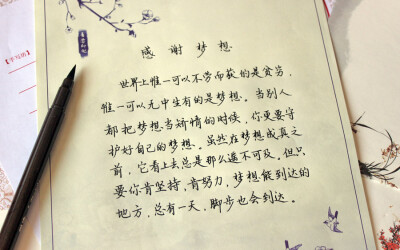 感谢梦想
世界上唯一可以不劳而获的是贫穷，
唯一可以无中生有的是梦想。当别人
都把梦想当矫情的时候，你更要守
护好自己的梦想。虽然在梦想成真之
前，它看上去总是那么遥不可及。但只
要你肯坚持，肯努力，梦想能到达的
地方，总有一天，脚步也会到达。